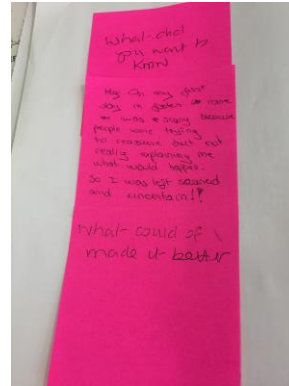 What did
you want to
know
My On my first
day in foster care
was scary because
people were trying
to reassure but not
really explaining me
what would happen.
So I was left scared
and uncertain!!
What could of
made it better